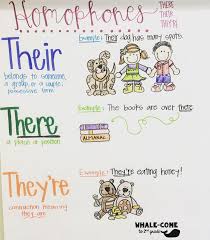 Homophones
THERE
THEIR
THEY'RE
Their
belongs to someone,
a group or a couple,
possessive form
Example: Their dog has many spots.
There
a place or position
Example: The books are over there.
ALMANAC
They're
contraction meaning
they are
Example: They're eating honey!
WHALE-COME
to 2nd grade